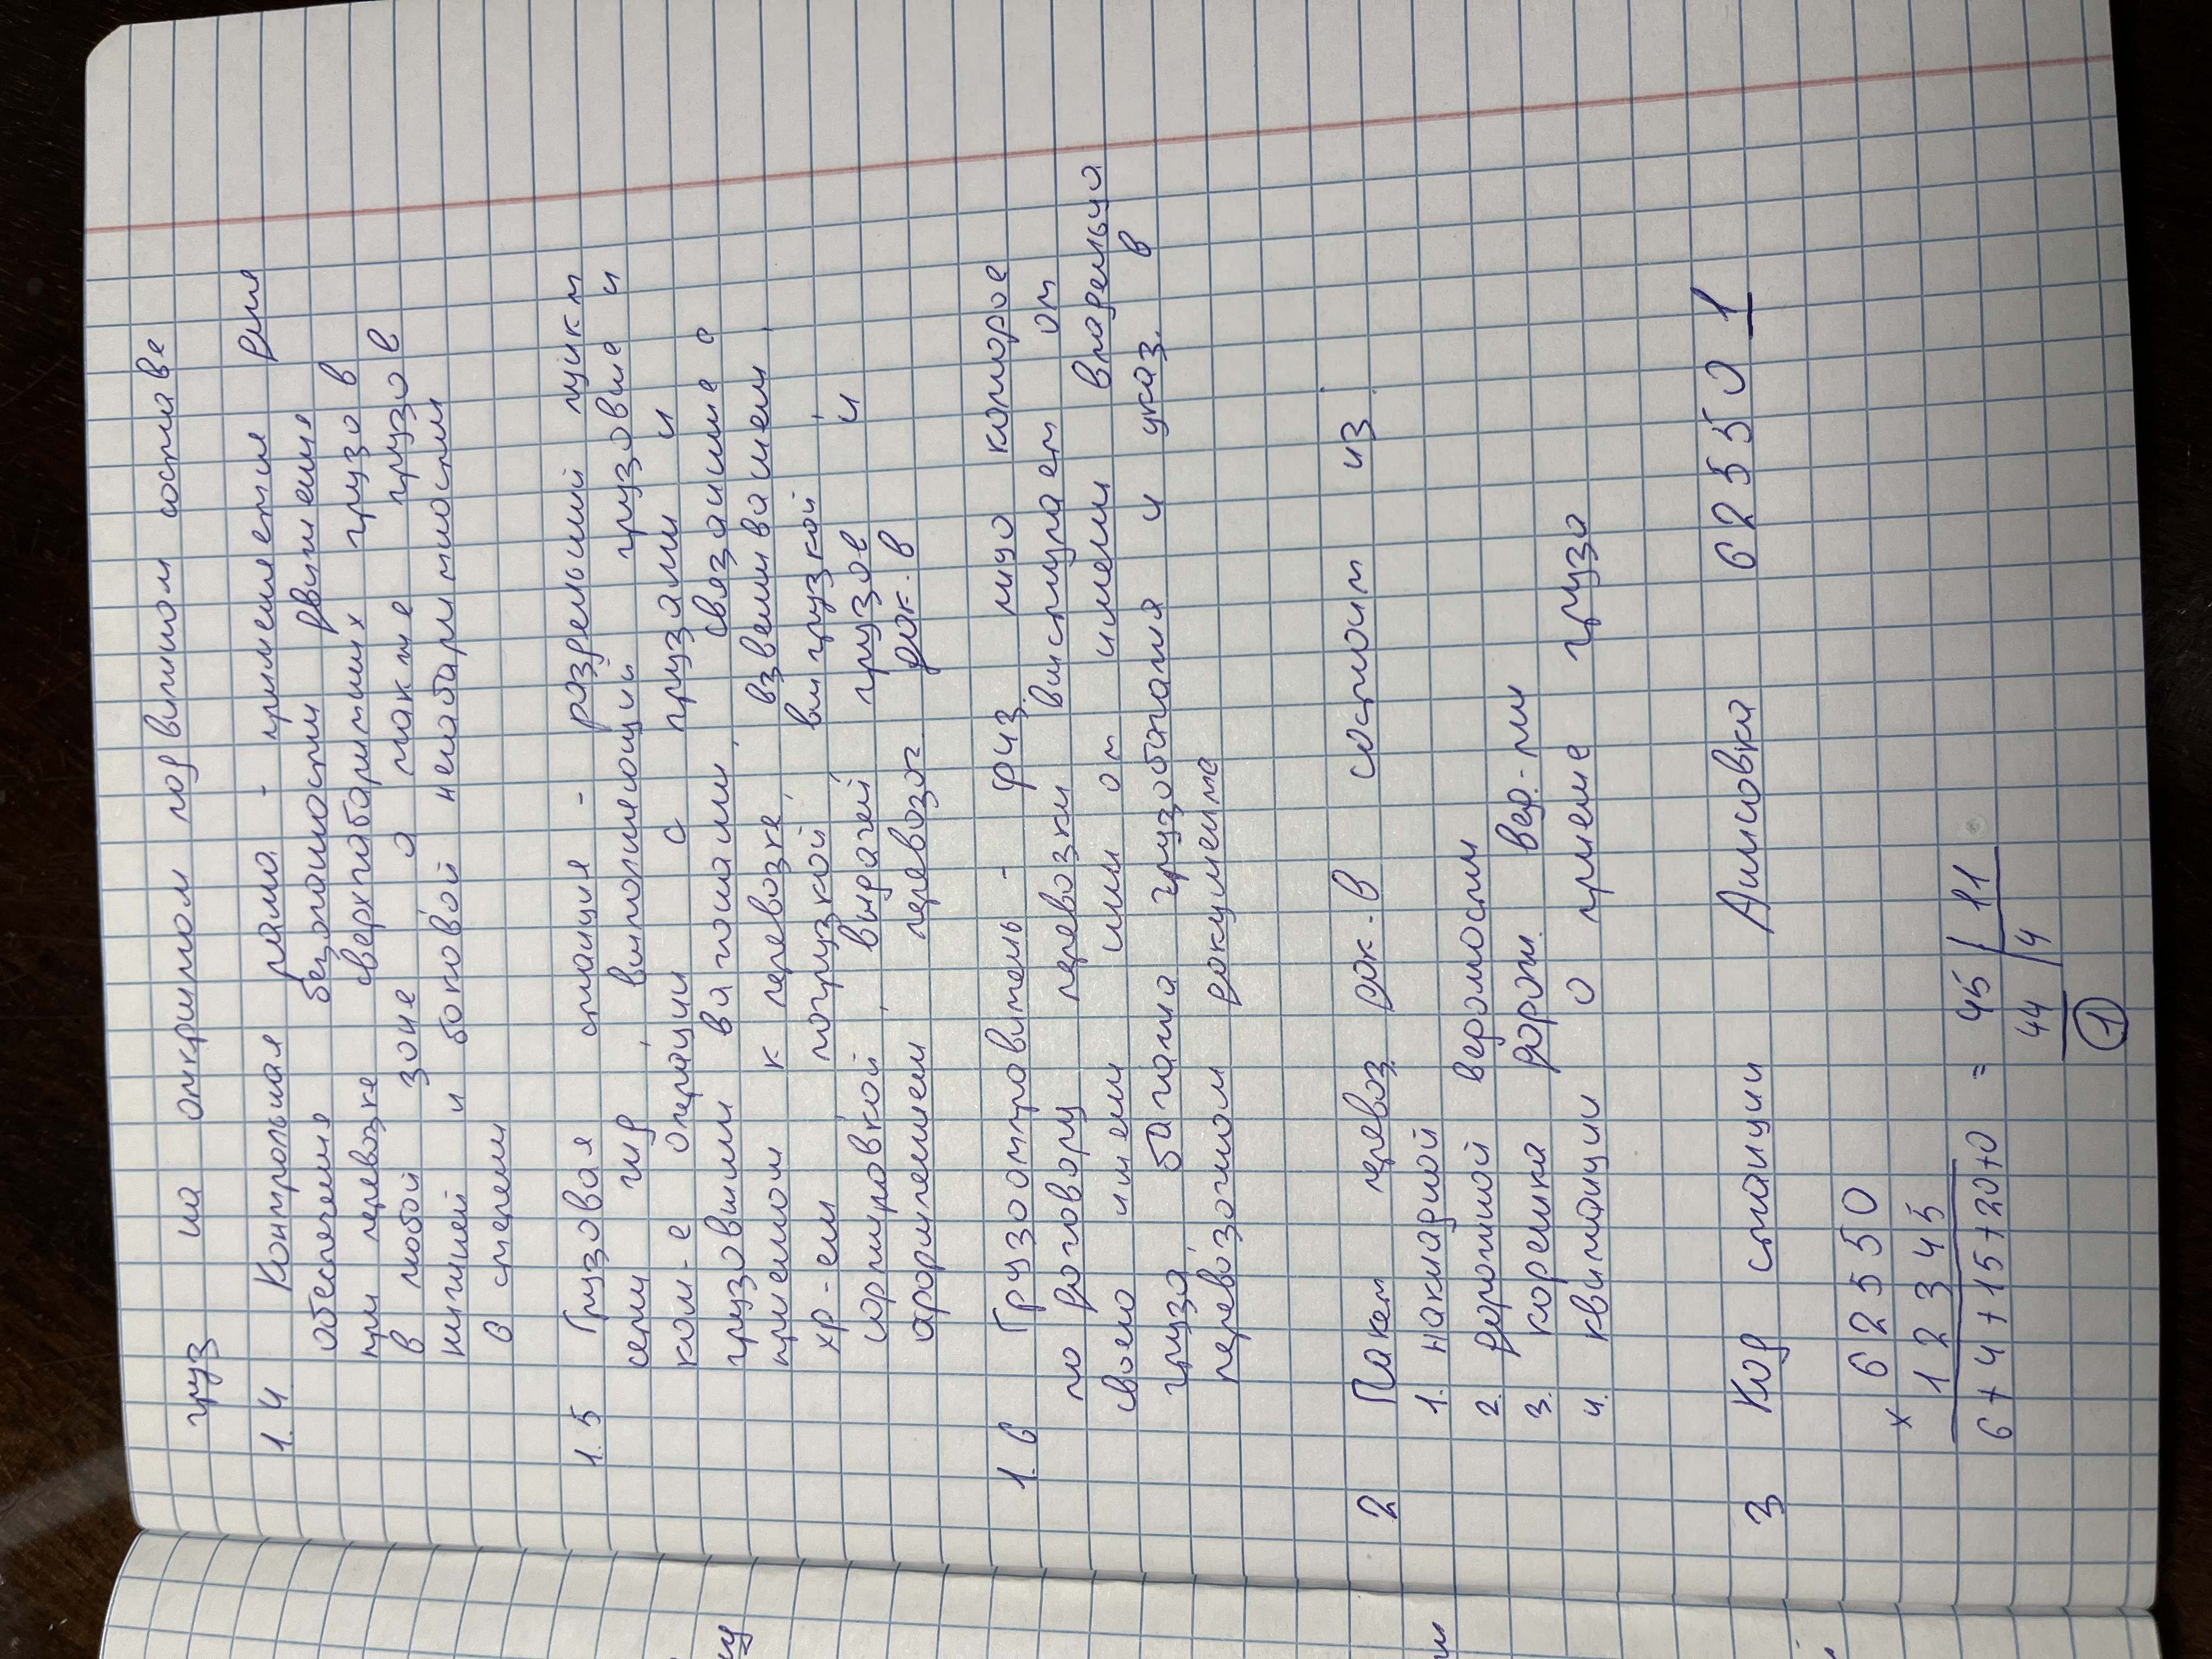 груз на открытом подвижном составе
1.4 Контрольная рама - применение для
обеспечения безопасности движения
при перевозке сверхгабаритных грузов
в любой зоне а также грузов
нижней и боковой негабаритности
в степени
1.5 Грузовая станция - раздельный пункт
сети жд, выполняющий грузовые и
ком-е операции с грузами и
грузовыми вагонами, связанные с
приемом к перевозке, взвешиванием,
хр-ем погрузкой выгрузкой и
сортировкой, выдачей грузов и
оформлением перевозоч док-в
1.6 Грузоотправитель - физ. лицо которое
по договору перевозки выступает от
своего имени или от имени владельца
груза, багажа грузобагажа и указ. в
перевозочном документе
2 Пакет перевоз док-в состоит из:
1. накладной
2. дорожной ведомости
3. корешка дорож. вед-ти
4. квитанции о приеме груза
3 Код станции Анисовка 62550 1
х 62550
12345
6+4+15+20+0 = 45 11
44 4
1